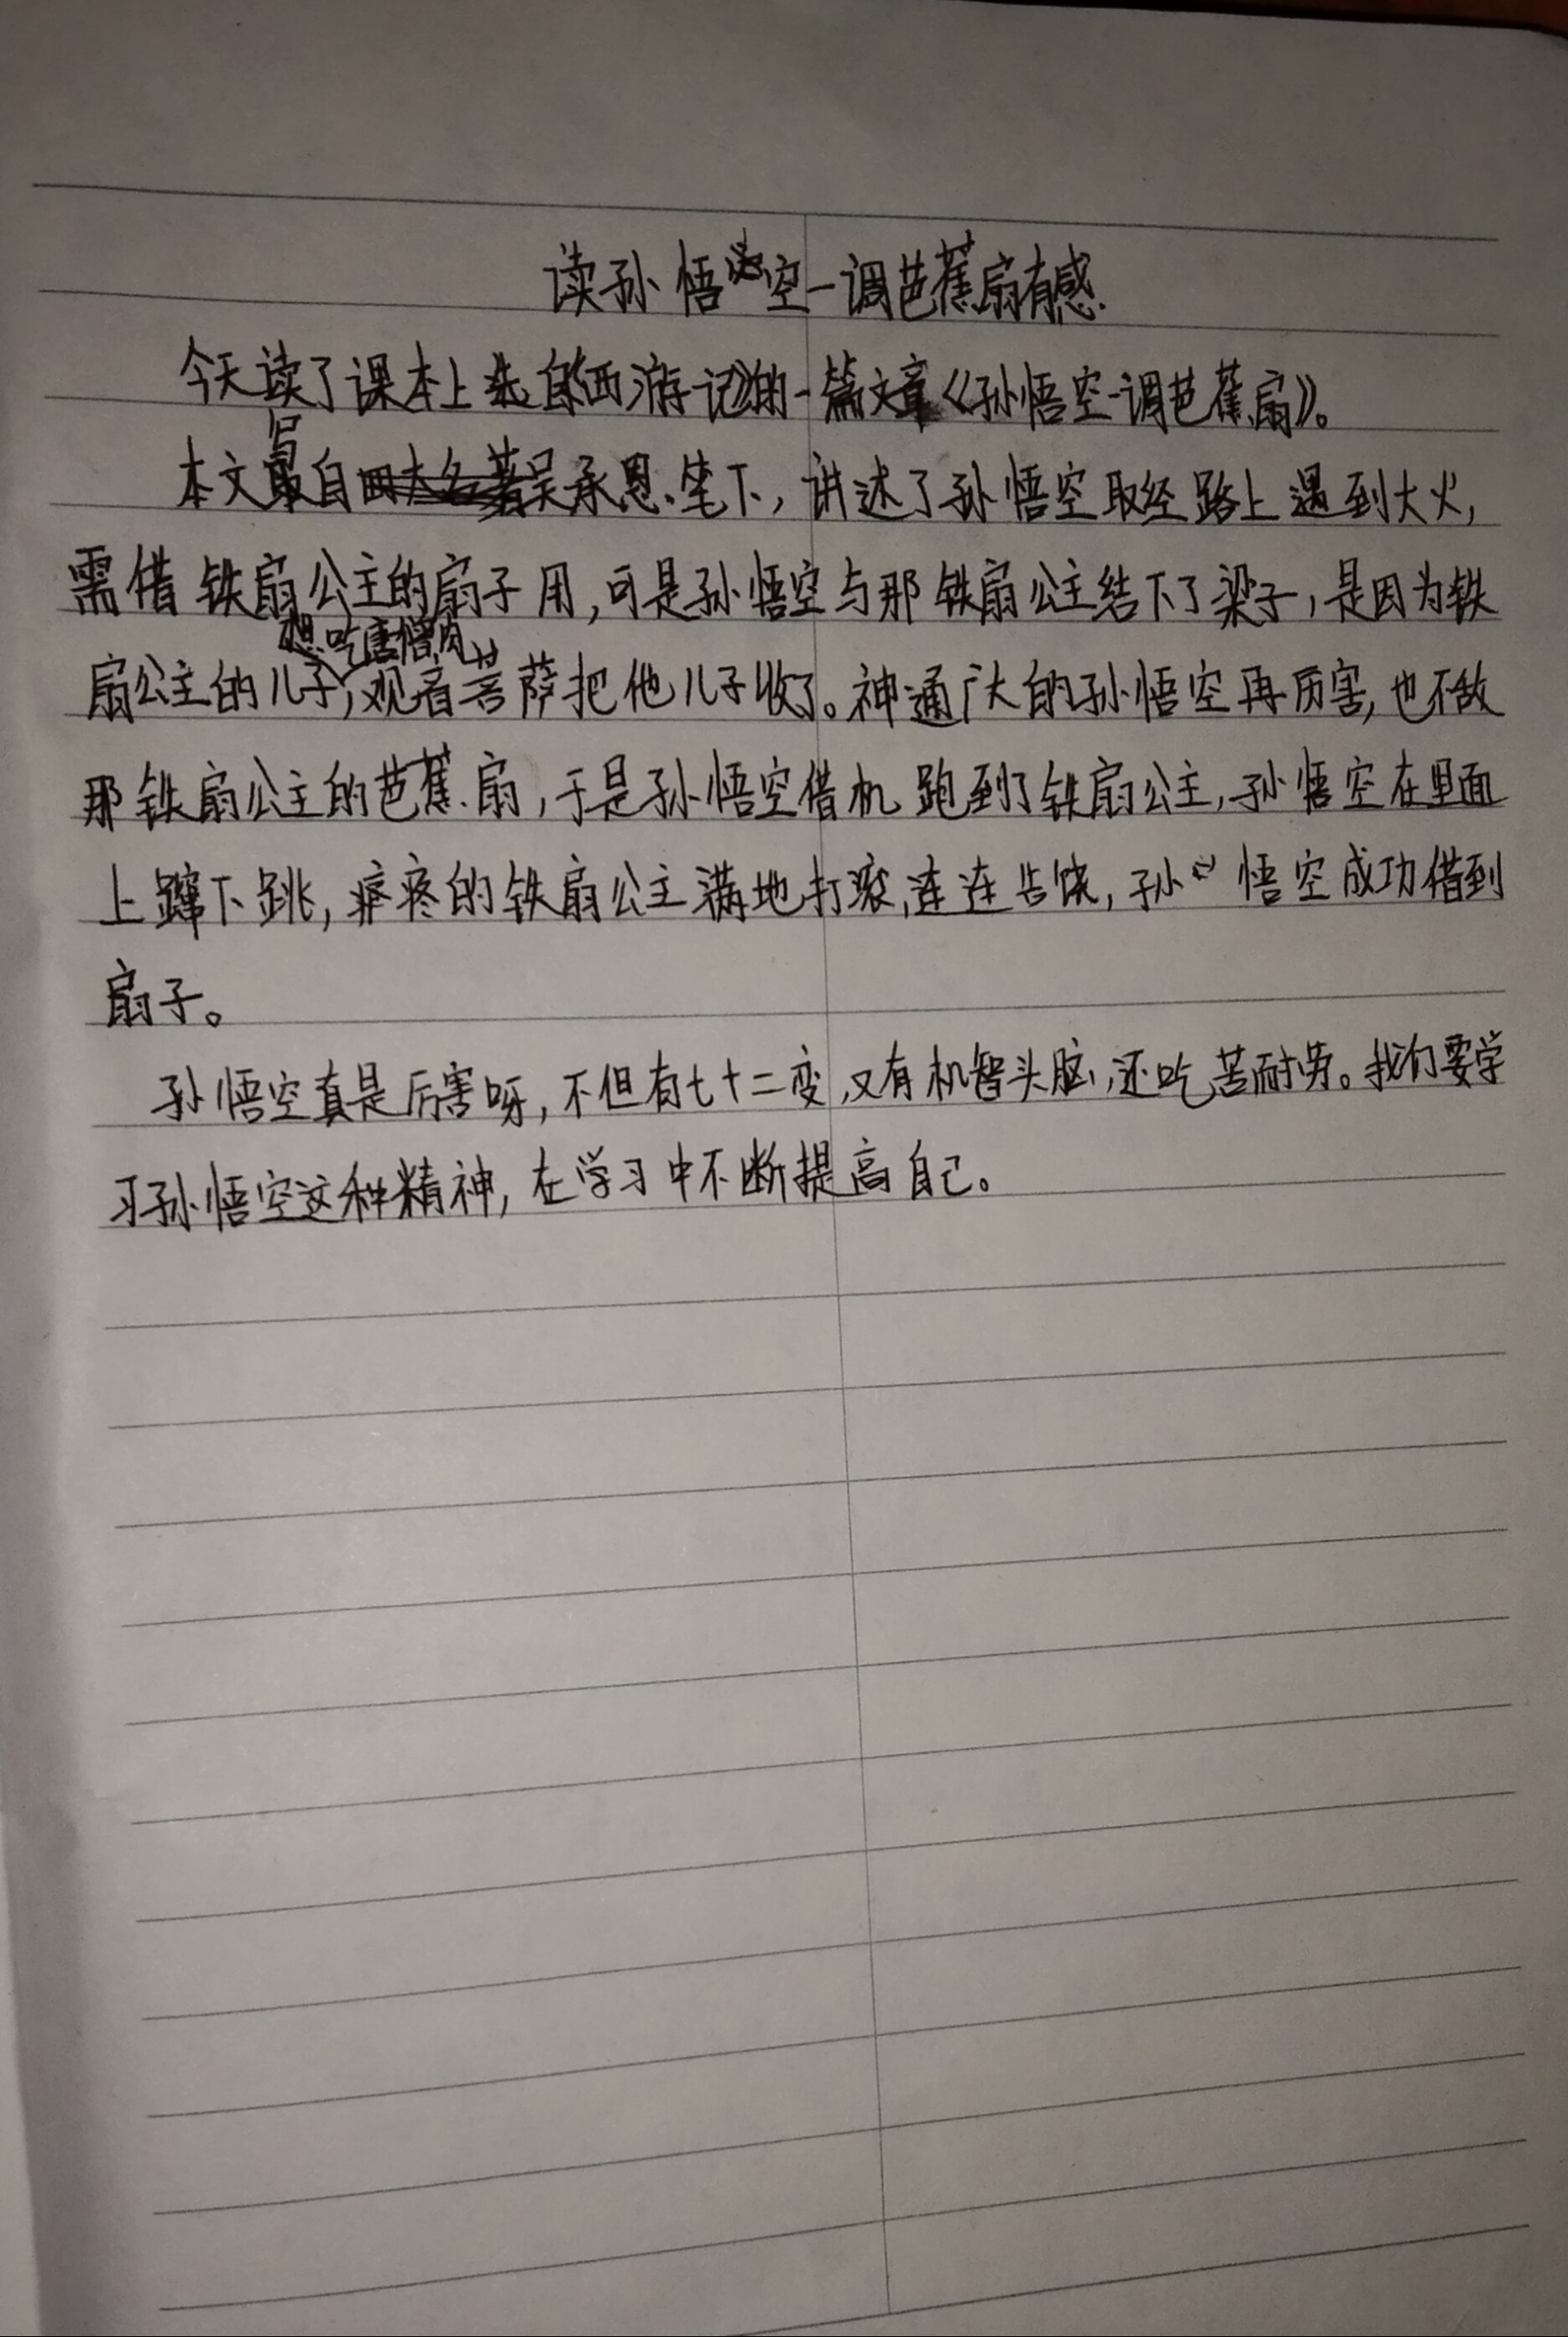 读孙悟空一调芭蕉扇有感.
今天读了课本上选自《西游记》的一篇文章《孙悟空一调芭蕉扇》。
本文写自吴承恩笔下,讲述了孙悟空取经路上遇到大火,
需借铁扇公主的扇子用,可是孙悟空与那铁扇公主结下了梁子,是因为铁
扇公主的儿子想吃唐僧肉,观音菩萨把他儿子收了。神通广大的孙悟空再厉害,也不敌
那铁扇公主的芭蕉扇,于是孙悟空借机跑到了铁扇公主,孙悟空在里面
上蹿下跳,疼的铁扇公主满地打滚,连连告饶,孙悟空成功借到
扇子。
孙悟空真是厉害呀,不但有七十二变,又有机智头脑,还吃苦耐劳。我们要学
习孙悟空这种精神,在学习中不断提高自己。